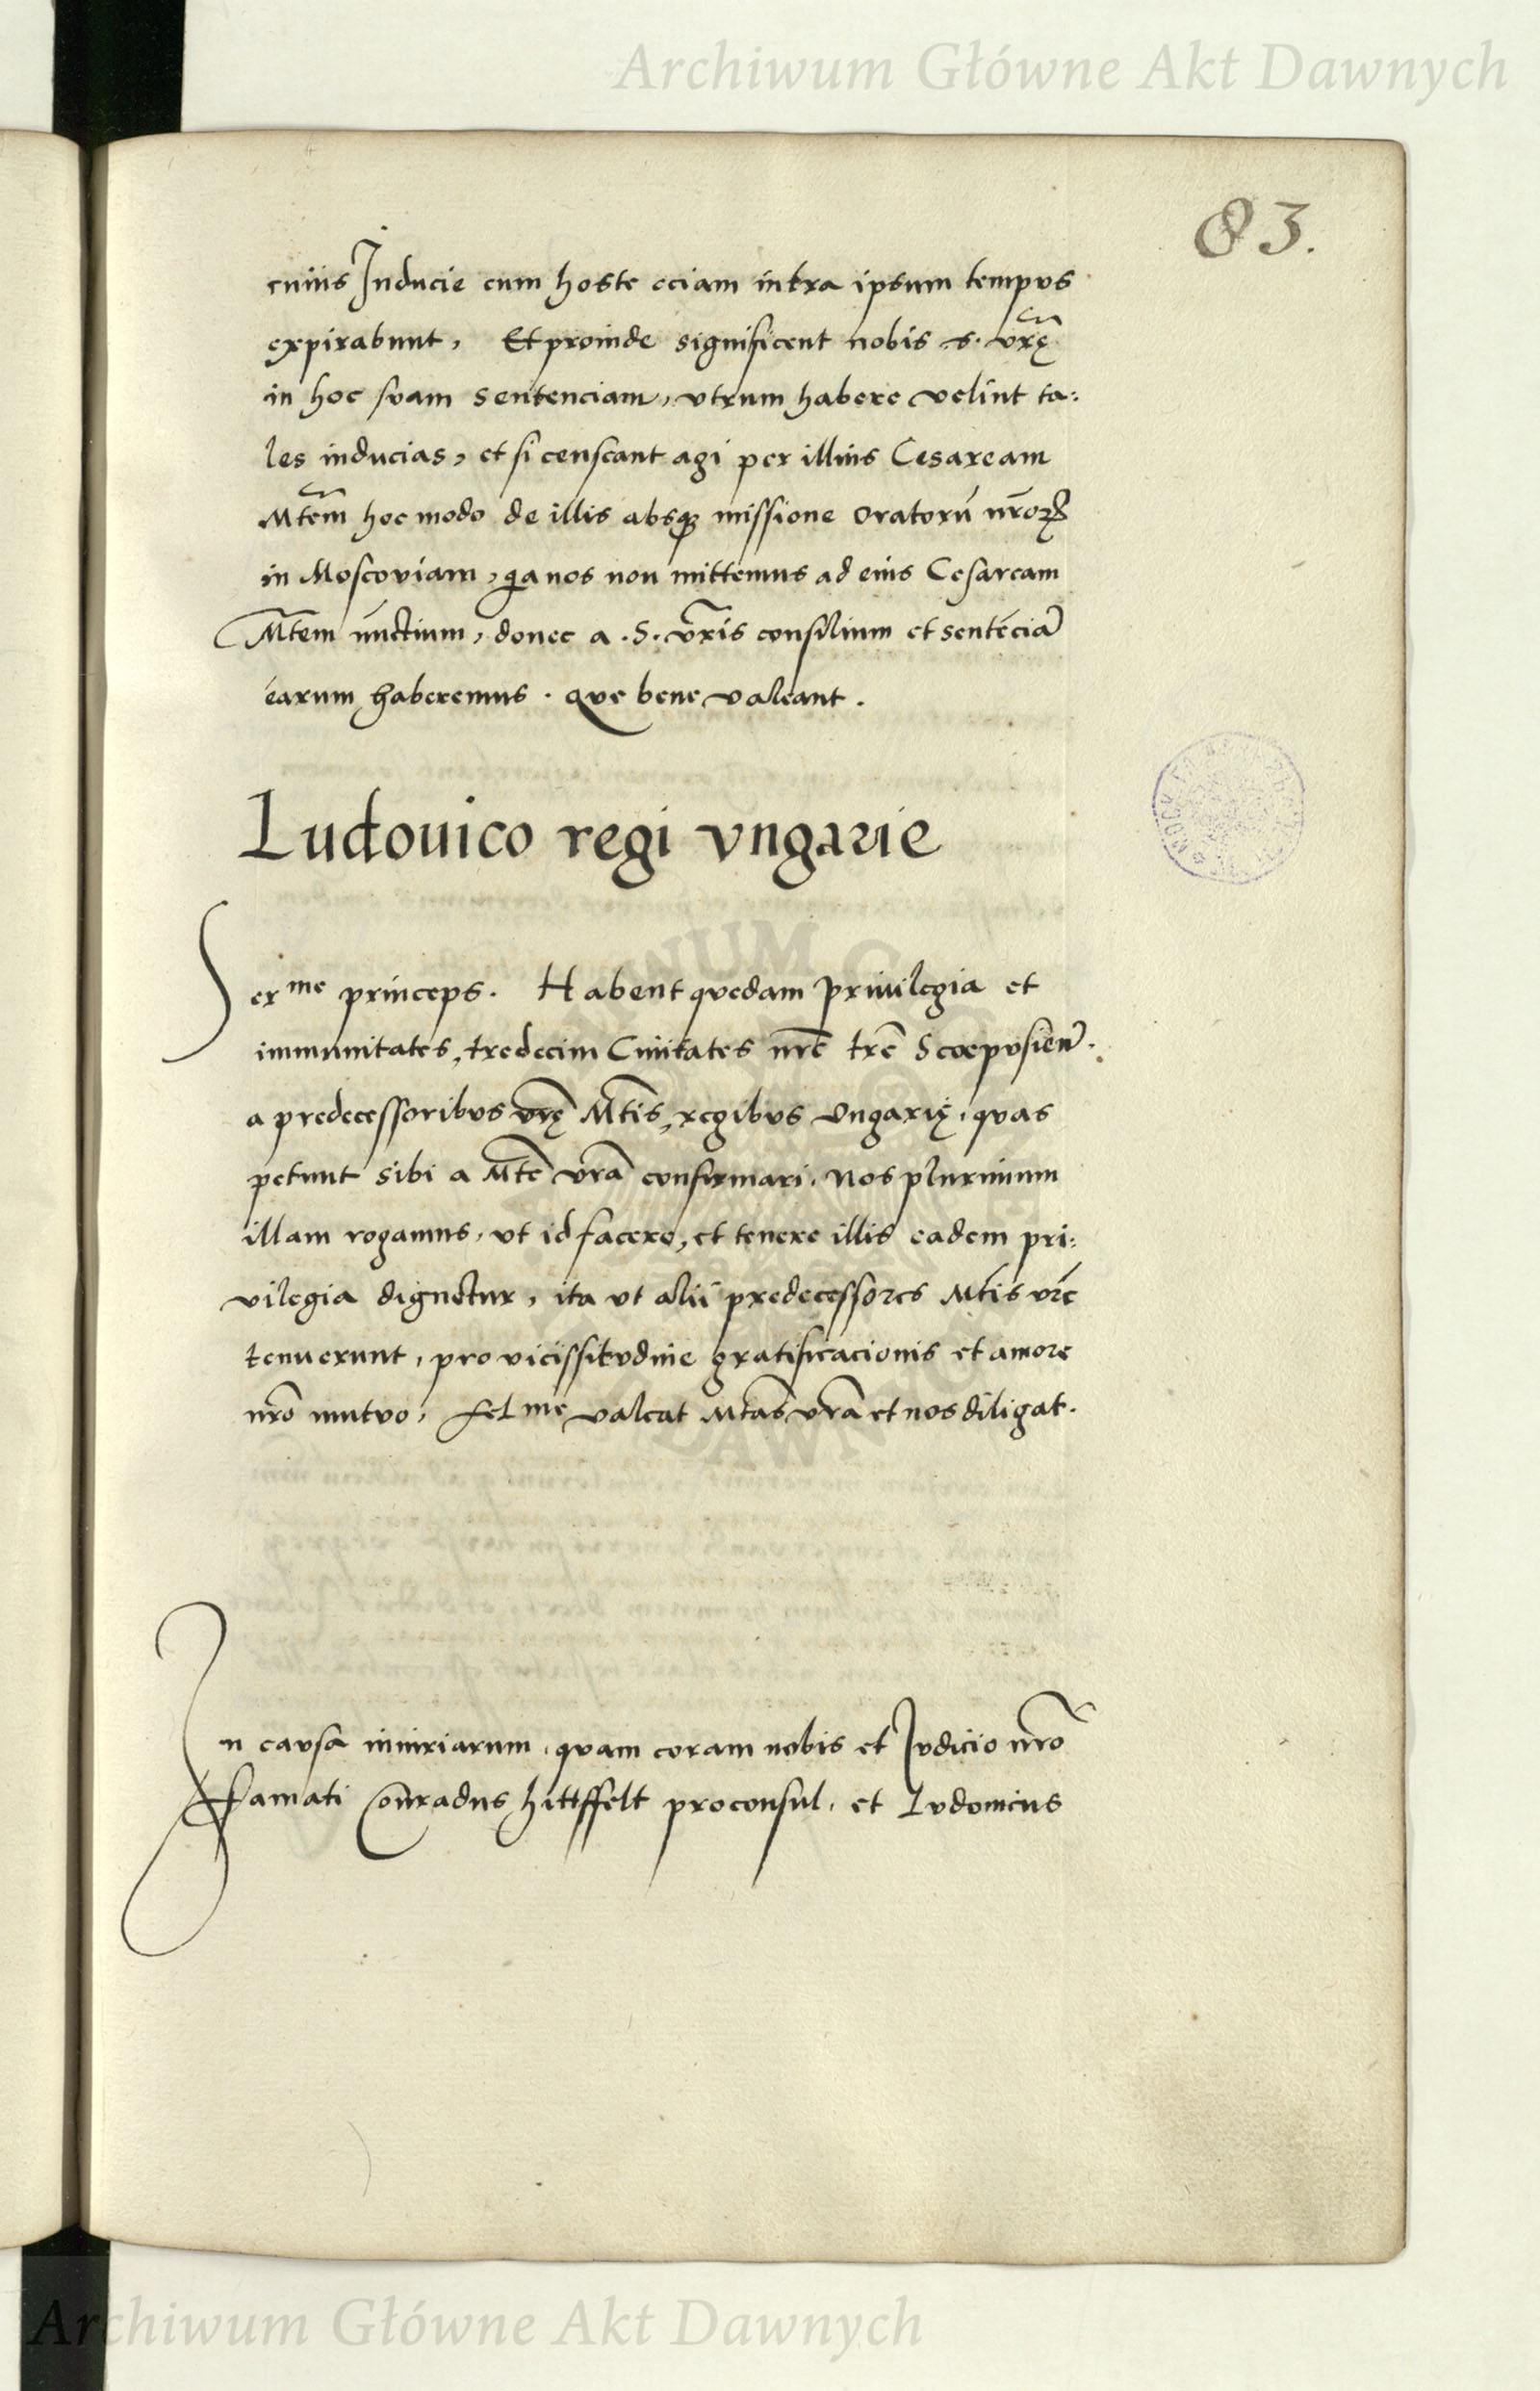 Archiwum Główne Akt Dawnych
83.
cuius Inducie cum hoste eciam intra ipsum tempvs
expirabunt, Et proinde significent nobis s. vrę
in hoc svam sentenciam, vtrum habere velint ta:
les inducias, et si censeant agi per illius Cesaream
Mtem hoc modo de illis absq missione Oratorū nroꝝ
in Moscoviam, qa nos non mittemus ad eius Cesaream
Mtem nūctium, donec a .S. vris consilium et sentēciā
earum haberemus . Qve bene valeant .
Ludouico regi vngarie
Serme princeps. Habent qvedam Priuilegia et
immunitates, tredecim Ciuitates nre tre Scoepvsien.
a predecessoribvs vrę Mtis, regibvs Vngarię, qvas
petunt sibi a Mte vra confirmari. Nos plurimum
illam rogamus, vt id facere, et tenere illis eadem pri:
vilegia dignetur, ita vt alii predecessores Mtis vre
tenuerunt, pro vicissitvdine gratificacionis et amore
nro mutvo, felme valeat Mtas vra et nos diligat.
In cavsa iniuriarum, qvam coram nobis et Ivdicio nro
Famati Conradus hittffelt proconsul, et Lvdouicus
Archiwum Główne Akt Dawnych